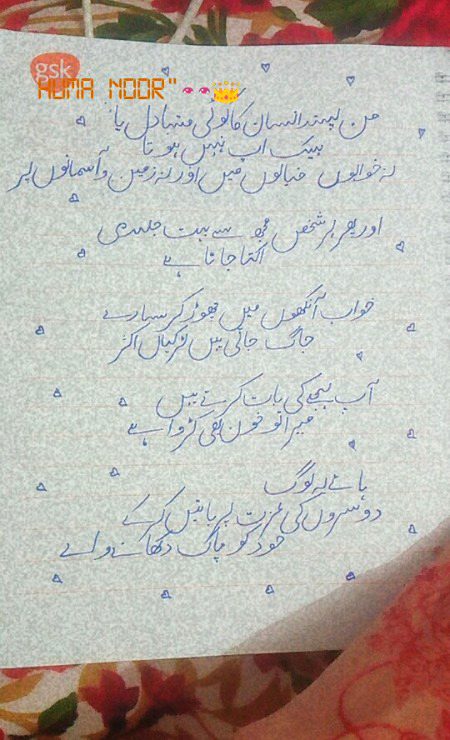 gsk
HUMA NOOR"
من پسند انسان کا کوئی متبادل یا
بیک اپ نہیں ہوتا
نہ خوابوں خیالوں میں اور نہ زمین و آسمانوں پر
اور پھر ہر شخص مجھ سے بہت جلدی
اکتا جاتا ہے
خواب آنکھوں میں چھوڑ کر سارے
جاگ جاتی ہیں لڑکیاں اکثر
آپ لہجے کی بات کرتے ہیں
میرا تو خون بھی کڑوا ہے
ہائے یہ لوگ
دوسروں کی عزت پر باتیں کر کے
خود کو پاک دکھانے والے